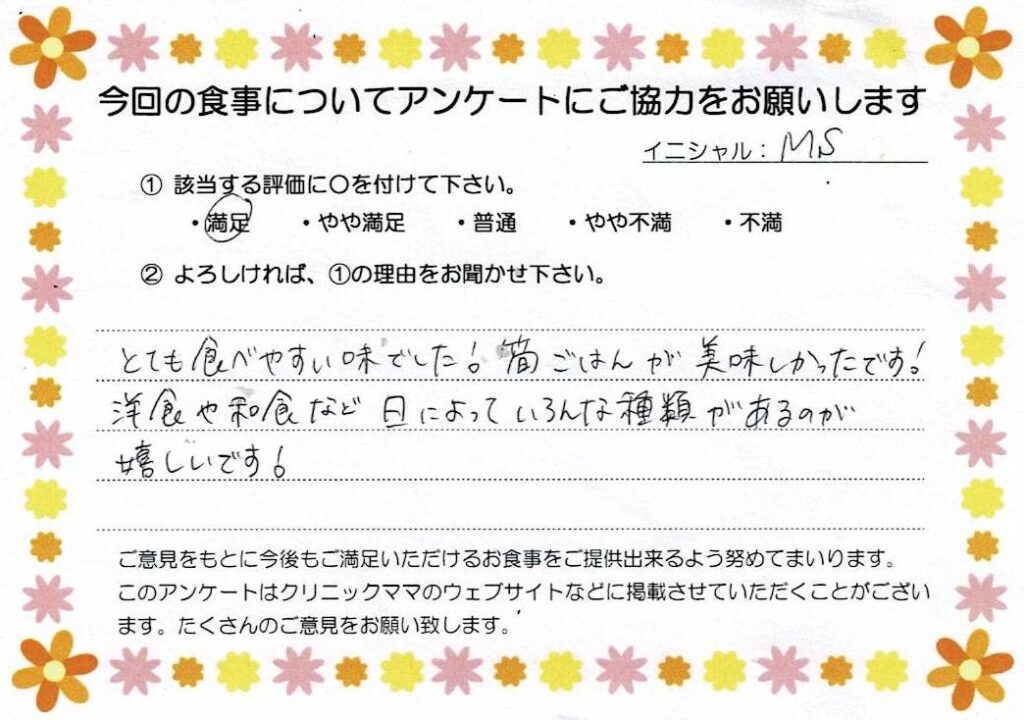 今回の食事についてアンケートにご協力をお願いします
イニシャル： MS
① 該当する評価に〇を付けて下さい。
・満足 ・やや満足 ・普通 ・やや不満 ・不満
② よろしければ、①の理由をお聞かせ下さい。
とても食べやすい味でした！筍ごはんが美味しかったです！
洋食や和食など日によっていろんな種類があるのが
嬉しいです！
ご意見をもとに今後もご満足いただけるお食事をご提供出来るよう努めてまいります。
このアンケートはクリニックママのウェブサイトなどに掲載させていただくことがござい
ます。たくさんのご意見をお願い致します。